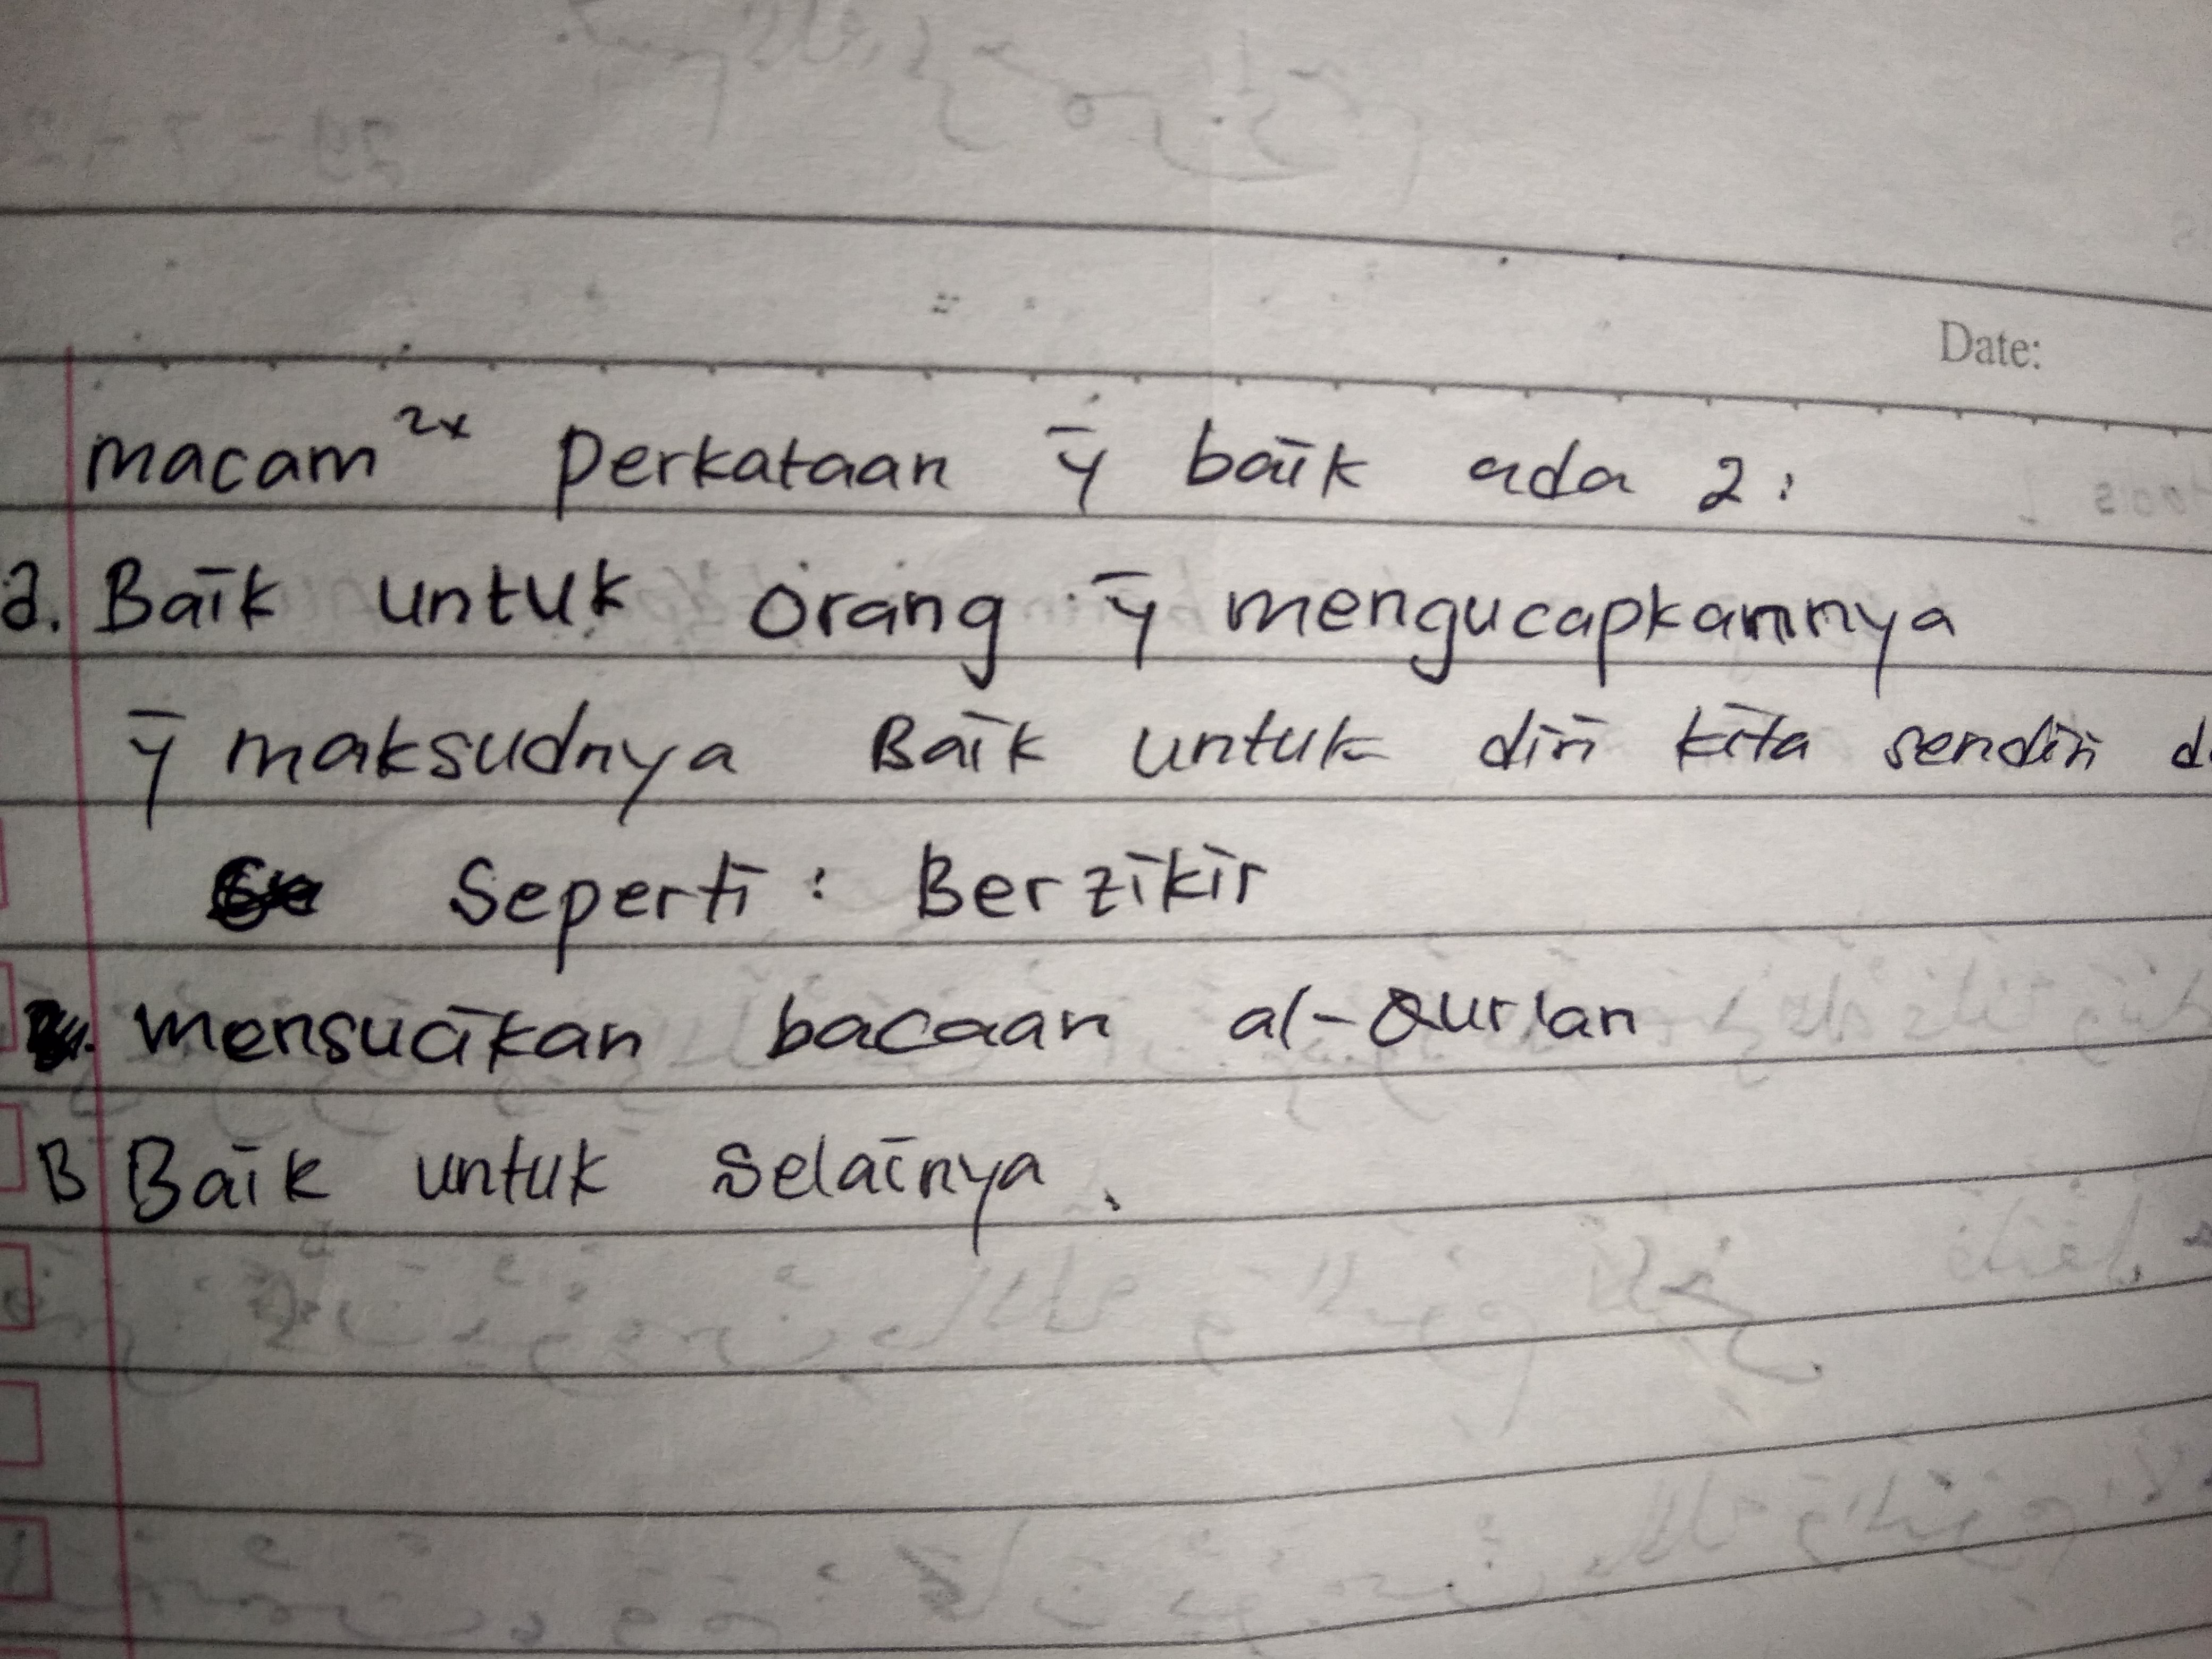 Date:
macam²ˣ perkataan ȳ baik ada 2:
a. Baik untuk orang ȳ mengucapkannya
ȳ maksudnya Baik untuk diri kita sendiri
Seperti: Berzikir
mensucikan bacaan al-Qur'an
B Baik untuk selainya.